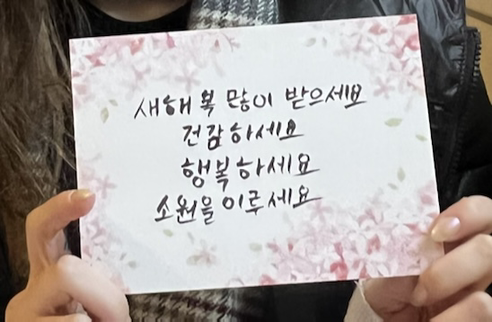 새해 복 많이 받으세요
건감하세요
행복하세요
소원을 이루세요